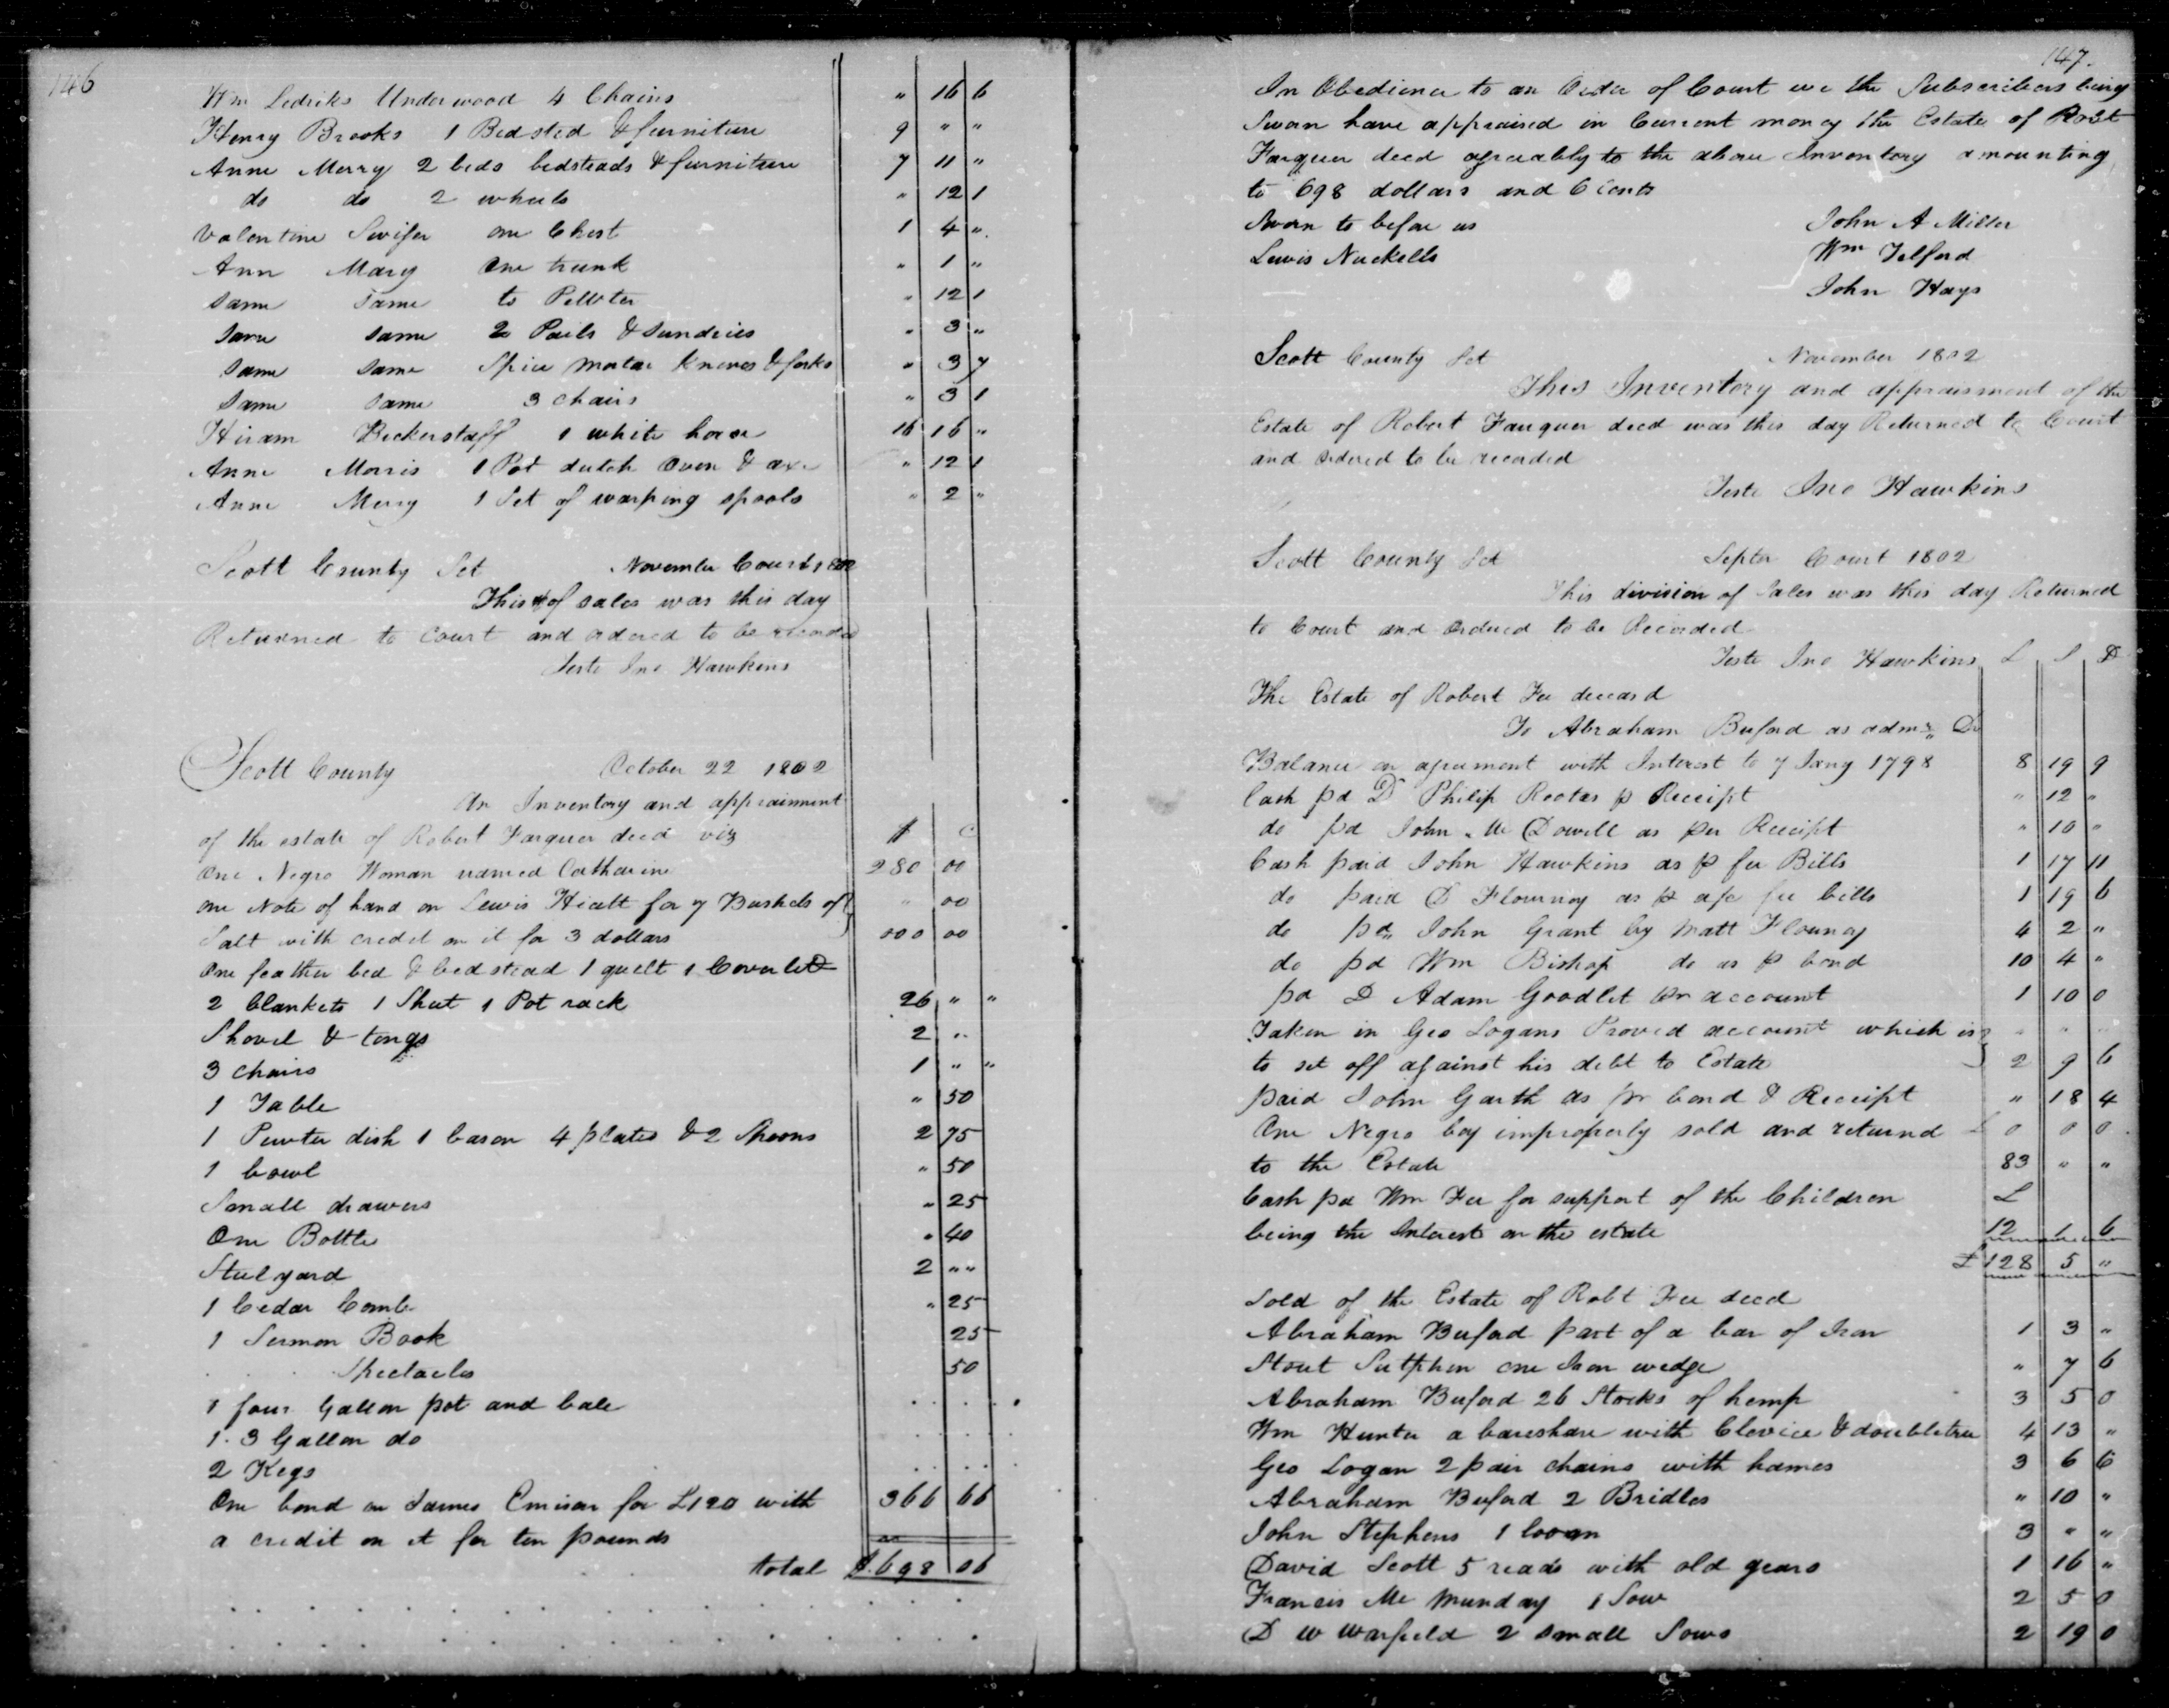 146
Wm Ledriks Underwood 4 Chains " 16 6
Henry Brooks 1 Bedsted & furniture 9 " "
Anne Merry 2 beds bedsteads & furniture 7 11 "
do do 2 wheels " 12 1
Valentine Swifer one Chest 1 4 "
Ann Mary One trunk " 1 "
Same Same to Pewter " 12 1
Same Same 2 Pails & Sundries " 3 "
Same Same Spice Mortar Knives & forks " 3 7
Same Same 3 chairs " 3 1
Hiram Beckerstaff 1 white horse 16 16 "
Anne Morris 1 Pot dutch Oven & axe " 12 1
Anne Merry 1 Set of warping spools " 2 "
Scott County Sct November Court 1802
This of sales was this day
Returned to Court and ordered to be recorded
Teste Jno Hawkins
Scott County October 22 1802
An Inventory and appraisment
of the estate of Robert Farquer decd viz $ C
One Negro Woman named Catharine 280 00
one Note of hand on Lewis Hiatt for 7 Bushels of " 00
Salt with credit on it for 3 dollars 000 00
One feather bed & bedstead 1 quelt 1 Coverled
2 blankets 1 Sheet 1 Pot rack 26 " "
Shovel & tongs 2 "
3 chairs 1 " "
1 Table " 50
1 Pewter dish 1 bason 4 plates & 2 Spoons 2 75
1 bowl " 50
Small drawers " 25
One Bottle " 40
Stulyard 2 " "
1 Cedar Comb " 25
1 Sermon Book 25
Spectacles 50
1 four Gallon pot and bale
1. 3 Gallon do
2 Kegs
One bond on James Emison for £120 with 366 66
a credit on it for ten pounds
total $ 698 06
147.
In Obedience to an Order of Court we the Subscribers being
Sworn have appraised in Current money the Estate of Robt
Farquer decd agreeably to the above Inventory amounting
to 698 dollars and 6 Cents
Sworn to before us John A Miller
Lewis Nuckells Wm Telford
John Hays
Scott County Sct November 1802
This Inventory and appraisment of the
Estate of Robert Farquer decd was this day Returned to Court
and ordered to be recorded
Teste Jno Hawkins
Scott County Sct Septr Court 1802
This division of Sales was this day Returned
to Court and Ordered to be Recorded
Teste Jno Hawkins L S D
The Estate of Robert Fee deceasd
To Abraham Buford as admr Dr
Balance on agreement with Interest to 7 Jany 1798 8 19 9
Cash pd D Philip Rootes p Receipt " 12 "
do pd John Mc Dowell as per Receipt " 10 "
Cash paid John Hawkins as p fee Bills 1 17 11
do paid D Flournoy as p a/c fee bills 1 19 6
do pd John Grant by Matt Flournoy 4 2 "
do pd Wm Bishop do as p bond 10 4 "
pd D Adam Goodlet pr account 1 10 0
Taken in Geo Logans Proved account which is " " "
to set off against his debt to Estate 2 9 6
paid John Garth as pr bond & Receipt " 18 4
One Negro boy improperly sold and returnd 0 0 0
to the Estate 83 " "
Cash pd Wm Fee for support of the Children £
being the Interest on the estate 12 1 6
£ 128 5 "
Sold of the Estate of Robt Fee decd
Abraham Buford part of a bar of Iron 1 3 "
Stout Sutphen one Iron wedge " 7 6
Abraham Buford 26 Stocks of hemp 3 5 0
Wm Hunter a bareshare with Clevice & doubletree 4 13 "
Geo Logan 2 pair chains with hames 3 6 6
Abraham Buford 2 Bridles " 10 "
John Stephens 1 loom 3 " "
David Scott 5 reads with old gears 1 16 "
Francis Mc Munday 1 Sow 2 5 0
D W Warfield 2 small Sows 2 19 0